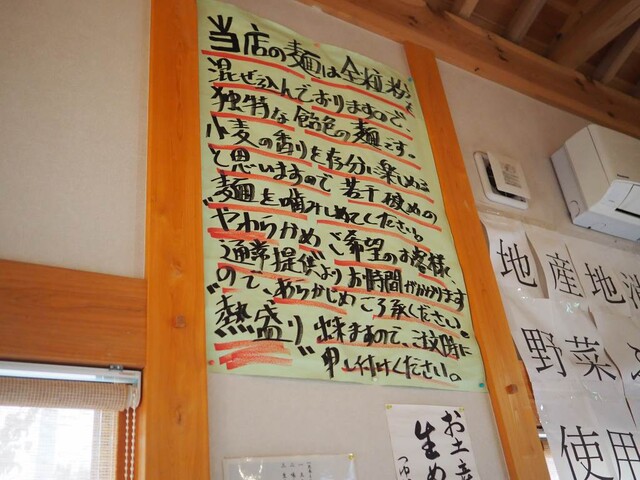 当店の麺は全粒粉を
混ぜ込んでおりますので、
独特な飴色の麺です。
小麦の香りを存分に楽しめる
と思いますので若干硬めの
麺を噛みしめてください。
"やわらかめ"ご希望のお客様は、
通常提供よりお時間がかかります
ので、あらかじめご了承ください。
"熱盛り"出来ますので、ご注文時に
申し付けください。
地産地消
野菜
使用
お土産
生め